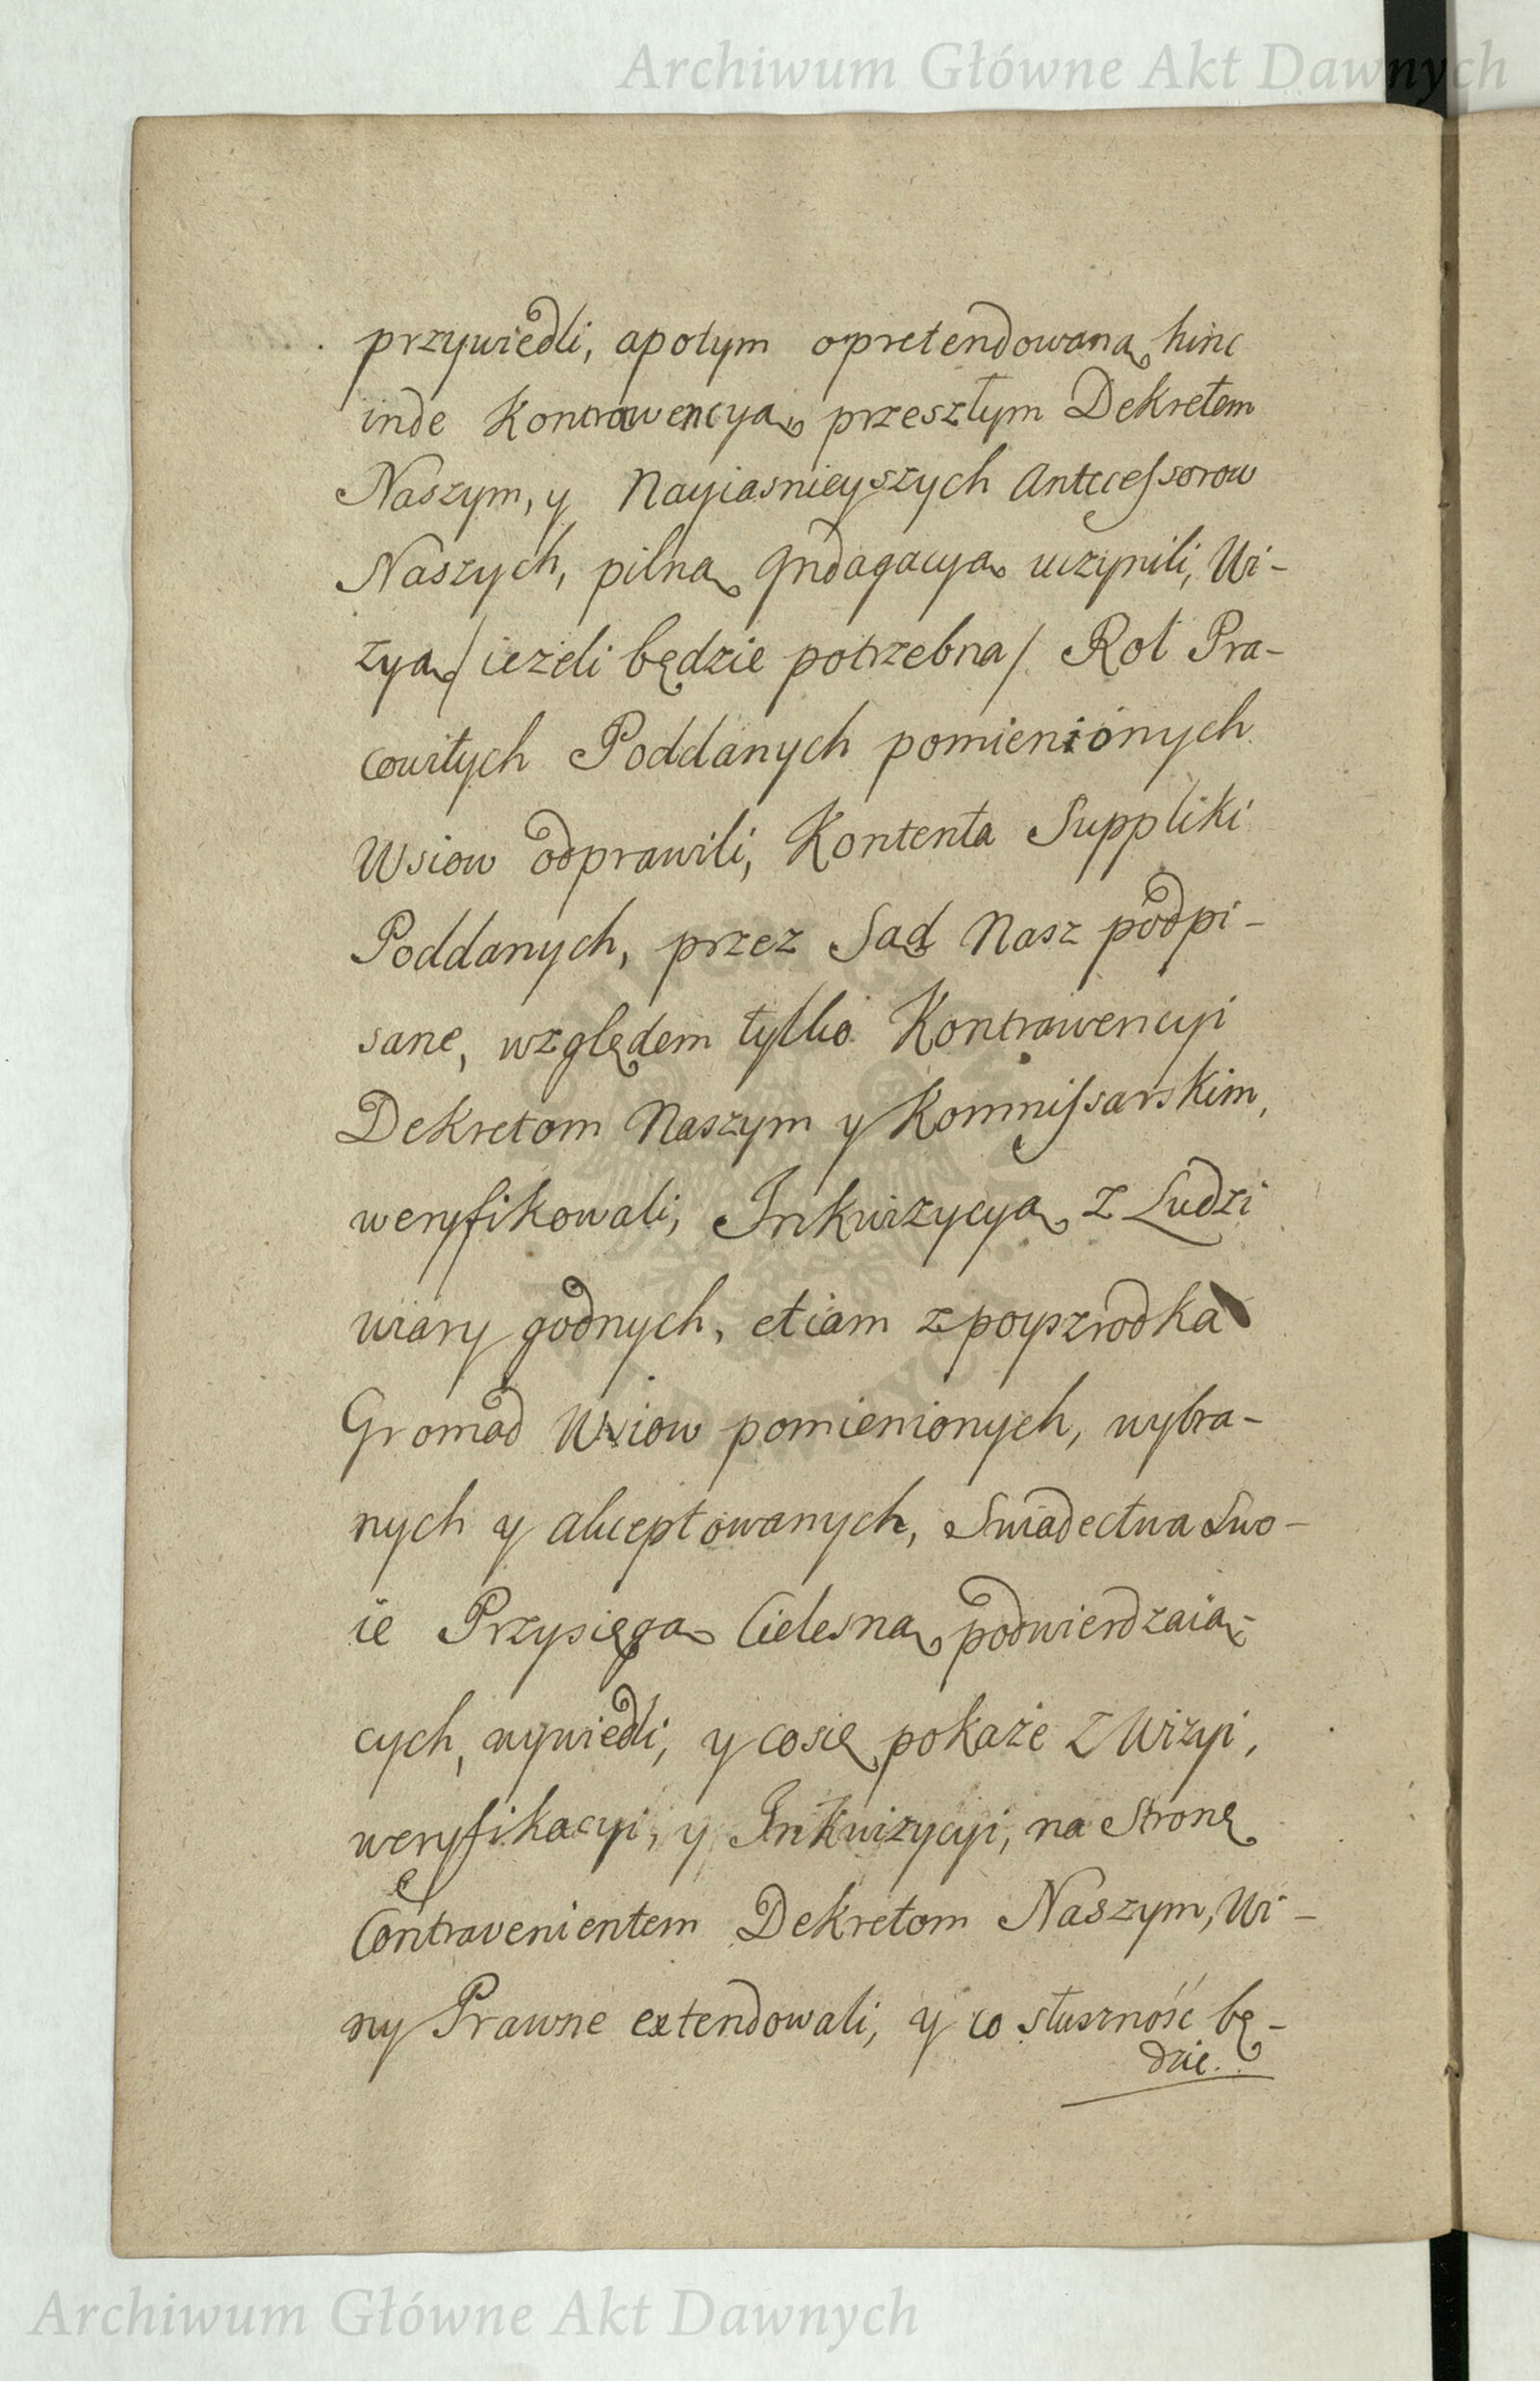 Archiwum Główne Akt Dawnych
przywiedli, apotym opretendowaną hinc
inde Kontrawencyą przeszłym Dekretem
Naszym, y Nayiasnieyszych Antecessorow
Naszych, pilną Indagacyą uczynili, Wi-
zyą / ieżeli będzie potrzebna / Rol Pra-
cowitych Poddanych pomienionych
Wsiow odprawili, Kontenta Suppliki
Poddanych, przez Sąd Nasz podpi-
sane, względem tylko Kontrawencyi
Dekretom Naszym y Kommissarskim,
weryfikowali, Inkwizycyą z Ludzi
wiary godnych, etiam zpoyszrodka
Gromad Wsiow pomienionych, wybra-
nych y akceptowanych, Swiadectwa Swo-
ie Przysięgą Cielesną podwierdzaią-
cych, wywiedli, y cosię pokaże z Wizyi,
weryfikacyi, y Inkwizycyi, na Stronę
Contravenientem Dekretom Naszym, Wi-
ny Prawne extendowali, y co słuszność bę-
dzie.
Archiwum Główne Akt Dawnych